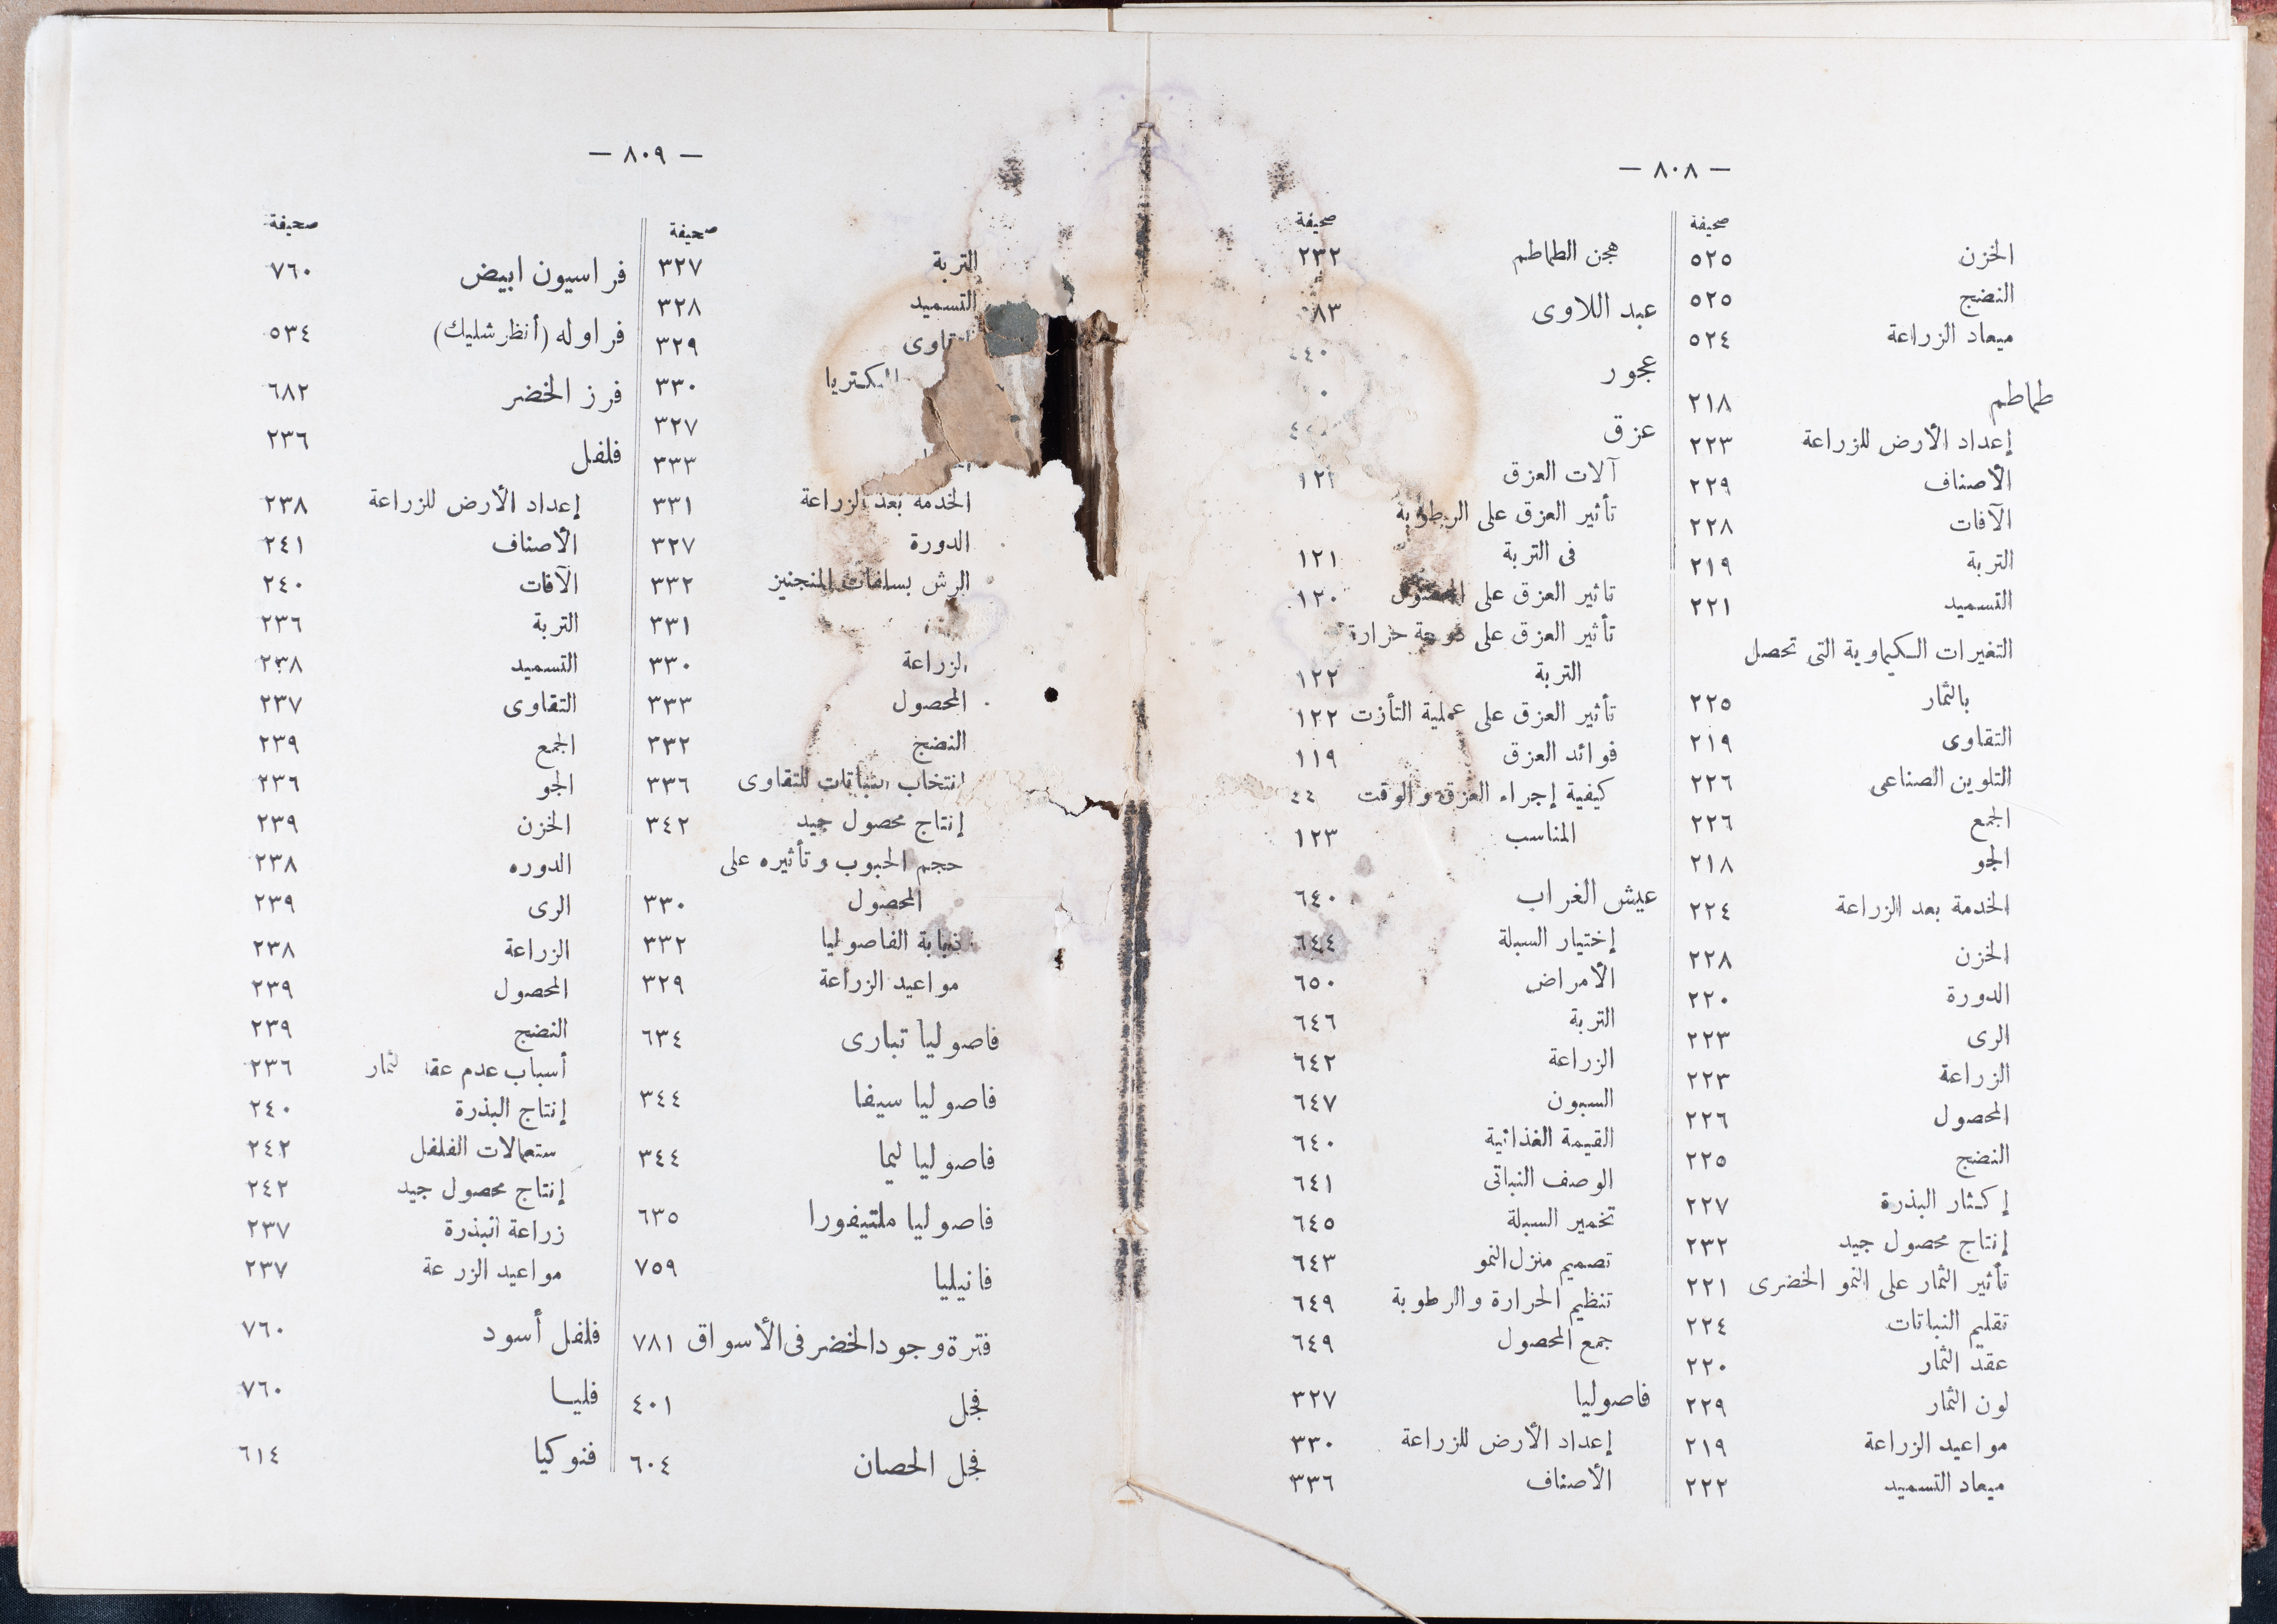 — ٨٠٨ —
صحيفة
الخزن ٥٢٥
النضج ٥٢٥
ميعاد الزراعة ٥٢٤
طماطم ٢١٨
إعداد الأرض للزراعة ٢٢٣
الأصناف ٢٢٩
الآفات ٢٢٨
التربة ٢١٩
التسميد ٢٢١
التغيرات الكيماوية التى تحصل
بالثمار ٢٢٥
التقاوى ٢١٩
التلوين الصناعى ٢٢٦
الجمع ٢٢٦
الجو ٢١٨
الخدمة بعد الزراعة ٢٢٤
الخزن ٢٢٨
الدورة ٢٢٠
الرى ٢٢٣
الزراعة ٢٢٣
المحصول ٢٢٦
النضج ٢٢٥
إكثار البذرة ٢٢٧
إنتاج محصول جيد ٢٣٢
تأثير الثمار على النمو الخضرى ٢٢١
تقليم النباتات ٢٢٤
عقد الثمار ٢٢٠
لون الثمار ٢٢٩
مواعيد الزراعة ٢١٩
ميعاد التسميد ٢٢٢
صحيفة
هجن الطماطم ٢٣٢
عبد اللاوى ٨٣
عجور
عزق
آلات العزق ١٢٢
تأثير العزق على الرطوبة
فى التربة ١٢١
تاثير العزق على المحصول ١٢٠
تأثير العزق على درجة حرارة
التربة ١٢٢
تأثير العزق على عملية التأزت ١٢٢
فوائد العزق ١١٩
كيفية إجراء العزق والوقت ٤٤
المناسب ١٢٣
عيش الغراب ٦٤٠
إختيار السبلة ٦٤٤
الأمراض ٦٥٠
التربة ٦٤٦
الزراعة ٦٤٢
السبون ٦٤٧
القيمة الغذائية ٦٤٠
الوصف النباتى ٦٤١
تخمير السبلة ٦٤٥
تصميم منزل النمو ٦٤٣
تنظيم الحرارة والرطوبة ٦٤٩
جمع المحصول ٦٤٩
فاصوليا ٣٢٧
إعداد الأرض للزراعة ٣٣٠
الأصناف ٣٣٦
— ٨٠٩ —
صحيفة
التربة ٣٢٧
التسميد ٣٢٨
٣٢٩
البكتريا ٣٣٠
٣٢٧
٣٣٣
الخدمة بعد الزراعة ٣٣١
الدورة ٣٢٧
الرش بسلفات المنجنيز ٣٣٢
٣٣١
الزراعة ٣٣٠
المحصول ٣٣٣
النضج ٣٣٢
انتخاب النباتات للتقاوى ٣٣٦
إنتاج محصول جيد ٣٤٢
حجم الحبوب وتأثيره على
المحصول ٣٣٠
ذبابة الفاصوليا ٣٣٢
مواعيد الزراعة ٣٢٩
فاصوليا تبارى ٦٣٤
فاصوليا سيفا ٣٤٤
فاصوليا ليما ٣٤٤
فاصوليا ملتيفورا ٦٣٥
فانيليا ٧٥٩
فترة وجود الخضر فى الأسواق ٧٨١
فجل ٤٠١
فجل الحصان ٦٠٤
صحيفة
فراسيون ابيض ٧٦٠
فراوله (أنظر شليك) ٥٣٤
فرز الخضر ٦٨٢
فلفل ٢٣٦
إعداد الأرض للزراعة ٢٣٨
الأصناف ٢٤١
الآفات ٢٤٠
التربة ٢٣٦
التسميد ٢٣٨
التقاوى ٢٣٧
الجمع ٢٣٩
الجو ٢٣٦
الخزن ٢٣٩
الدوره ٢٣٨
الرى ٢٣٩
الزراعة ٢٣٨
المحصول ٢٣٩
النضج ٢٣٩
أسباب عدم عقد الثمار ٢٣٦
إنتاج البذرة ٢٤٠
ستعمالات الفلفل ٢٤٢
إنتاج محصول جيد ٢٤٢
زراعة البذرة ٢٣٧
مواعيد الزراعة ٢٣٧
فلفل أسود ٧٦٠
فليا ٧٦٠
فنوكيا ٦١٤